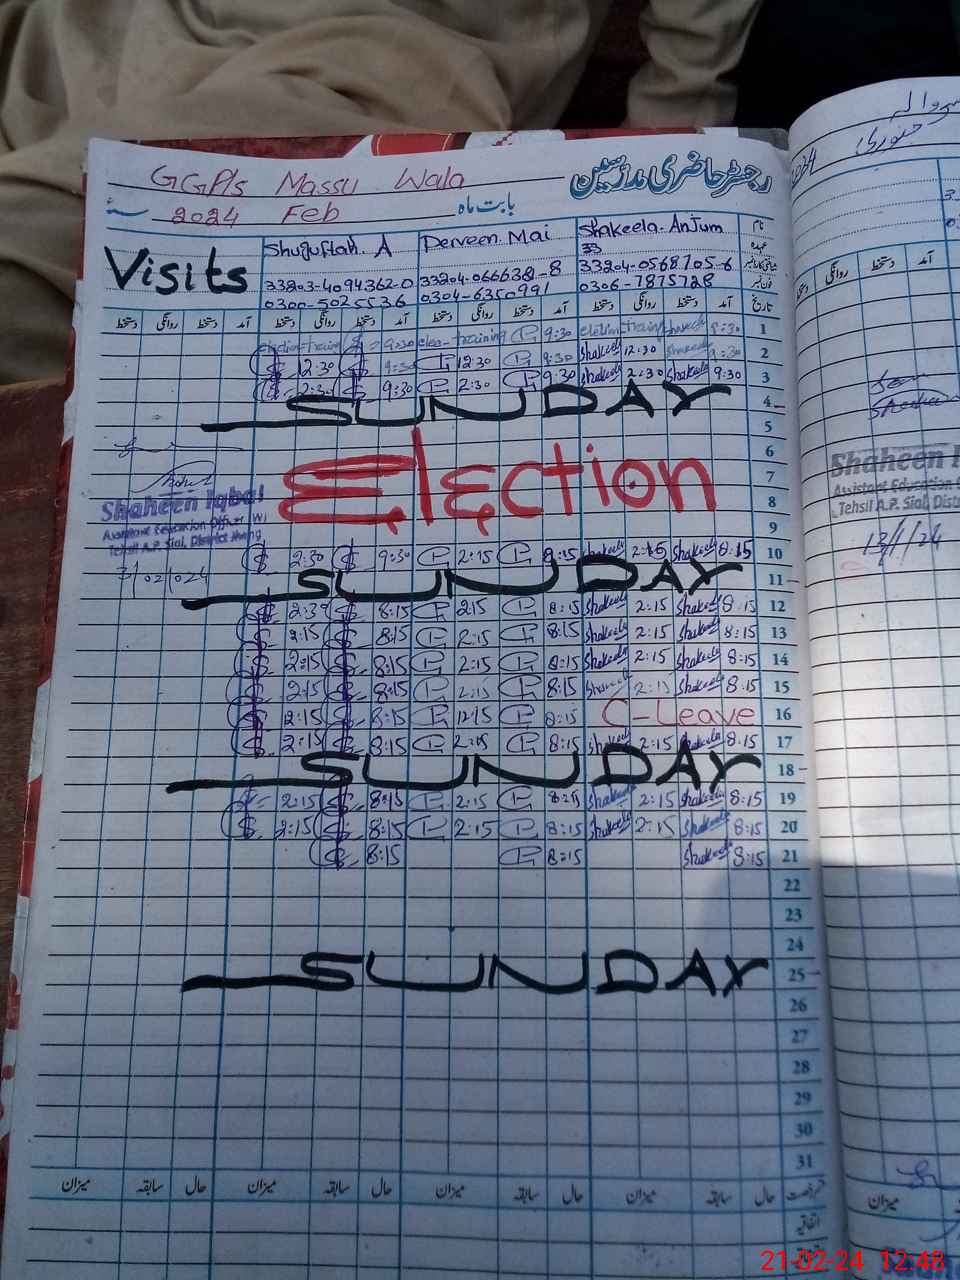 GGP/s Massu Wala
رجسٹر حاضری مدرسین
2024 Feb
بابت ماہ
سنہ
Visits
Shuguftah. A
Perveen. Mai
Shakeela. Anjum
نام
33
عہدہ
33203-4094362-0
33204-0666381-8
33204-0568705-6
0300-5025536
0304-6350991
0306-7875728
فون نمبر
دستخط روانگی دستخط آمد دستخط روانگی دستخط آمد دستخط روانگی دستخط آمد دستخط روانگی دستخط آمد تاریخ
election training 9:30 elec- training 9:30 election training Shakeela 9:30 1
12:30 9:30 12:30 9:30 Shakeela 12:30 Shakeela 9:30 2
2:30 9:30 2:30 9:30 Shakeela 2:30 Shakeela 9:30 3
SUNDAY 4
5
6
Election 7
8
9
Shaheen Iqbal
Assistant Education Officer (W)
Tehsil A.P. Sial, District Jhang
3/02/024
2:30 9:30 2:15 8:15 Shakeela 2:15 Shakeela 8:15 10
SUNDAY 11
2:30 8:15 2:15 8:15 Shakeela 2:15 Shakeela 8:15 12
2:15 8:15 2:15 8:15 Shakeela 2:15 Shakeela 8:15 13
2:15 8:15 2:15 8:15 Shakeela 2:15 Shakeela 8:15 14
2:15 8:15 2:15 8:15 Shakeela 2:15 Shakeela 8:15 15
2:15 8:15 12:15 8:15 C-Leave 16
2:15 8:15 2:15 8:15 Shakeela 2:15 Shakeela 8:15 17
SUNDAY 18
2:15 8:15 2:15 8:15 Shakeela 2:15 Shakeela 8:15 19
2:15 8:15 2:15 8:15 Shakeela 2:15 Shakeela 8:15 20
8:15 8:15 Shakeela 8:15 21
22
23
24
SUNDAY 25
26
27
28
29
30
31
میزان سابقہ حال میزان سابقہ حال میزان سابقہ حال میزان سابقہ حال قسم رخصت
اتفاقیہ
جنوری
روانگی دستخط آمد
Shaheen I
Assistant Education O
Tehsil A.P. Sial, Distr
13/1/24
میزان
21-02-24 12:48